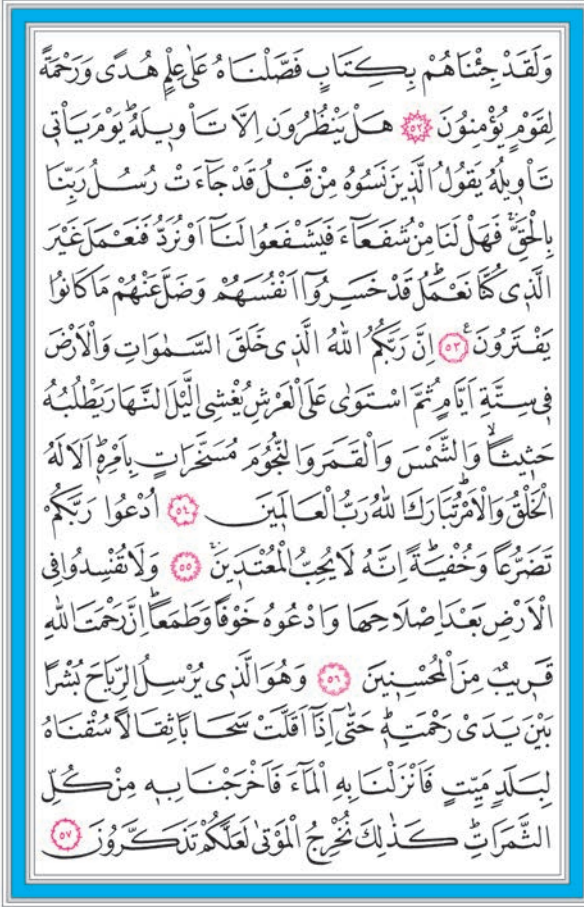 وَلَقَدْ جِئْنَاهُمْ بِكِتَابٍ فَصَّلْنَاهُ عَلٰى عِلْمٍ هُدًى وَرَحْمَةً
لِقَوْمٍ يُؤْمِنُونَ ﴿٥٢﴾ هَلْ يَنْظُرُونَ اِلَّا تَأْوٖيلَهُۜ يَوْمَ يَأْتٖى
تَأْوٖيلُهُ يَقُولُ الَّذٖينَ نَسُوهُ مِنْ قَبْلُ قَدْ جَاءَتْ رُسُلُ رَبِّنَا
بِالْحَقِّۚ فَهَلْ لَنَا مِنْ شُفَعَٓاءَ فَيَشْفَعُوا لَنَٓا اَوْ نُرَدُّ فَنَعْمَلَ غَيْرَ
الَّذٖى كُنَّا نَعْمَلُۜ قَدْ خَسِرُٓوا اَنْفُسَهُمْ وَضَلَّ عَنْهُمْ مَا كَانُوا
يَفْتَرُونَ ﴿٥٣﴾ اِنَّ رَبَّكُمُ اللّٰهُ الَّذٖى خَلَقَ السَّمٰوَاتِ وَالْاَرْضَ
فٖى سِتَّةِ اَيَّامٍ ثُمَّ اسْتَوٰى عَلَى الْعَرْشِ يُغْشِى الَّيْلَ النَّهَارَ يَطْلُبُهُ
حَثٖيثًاۙ وَالشَّمْسَ وَالْقَمَرَ وَالنُّجُومَ مُسَخَّرَاتٍ بِاَمْرِهٖۜ اَلَا لَهُ
الْخَلْقُ وَالْاَمْرُۜ تَبَارَكَ اللّٰهُ رَبُّ الْعَالَمٖينَ ﴿٥٤﴾ اُدْعُوا رَبَّكُمْ
تَضَرُّعًا وَخُفْيَةًۜ اِنَّهُ لَا يُحِبُّ الْمُعْتَدٖينَۚ ﴿٥٥﴾ وَلَا تُفْسِدُوا فِى
الْاَرْضِ بَعْدَ اِصْلَاحِهَا وَادْعُوهُ خَوْفًا وَطَمَعًاۜ اِنَّ رَحْمَتَ اللّٰهِ
قَرٖيبٌ مِنَ الْمُحْسِنٖينَ ﴿٥٦﴾ وَهُوَ الَّذٖى يُرْسِلُ الرِّيَاحَ بُشْرًا
بَيْنَ يَدَىْ رَحْمَتِهٖۜ حَتّٰٓى اِذَٓا اَقَلَّتْ سَحَابًا ثِقَالًا سُقْنَاهُ
لِبَلَدٍ مَيِّتٍ فَاَنْزَلْنَا بِهِ الْمَٓاءَ فَاَخْرَجْنَا بِهٖ مِنْ كُلِّ
الثَّمَرَاتِۜ كَذٰلِكَ نُخْرِجُ الْمَوْتٰى لَعَلَّكُمْ تَذَكَّرُونَ ﴿٥٧﴾